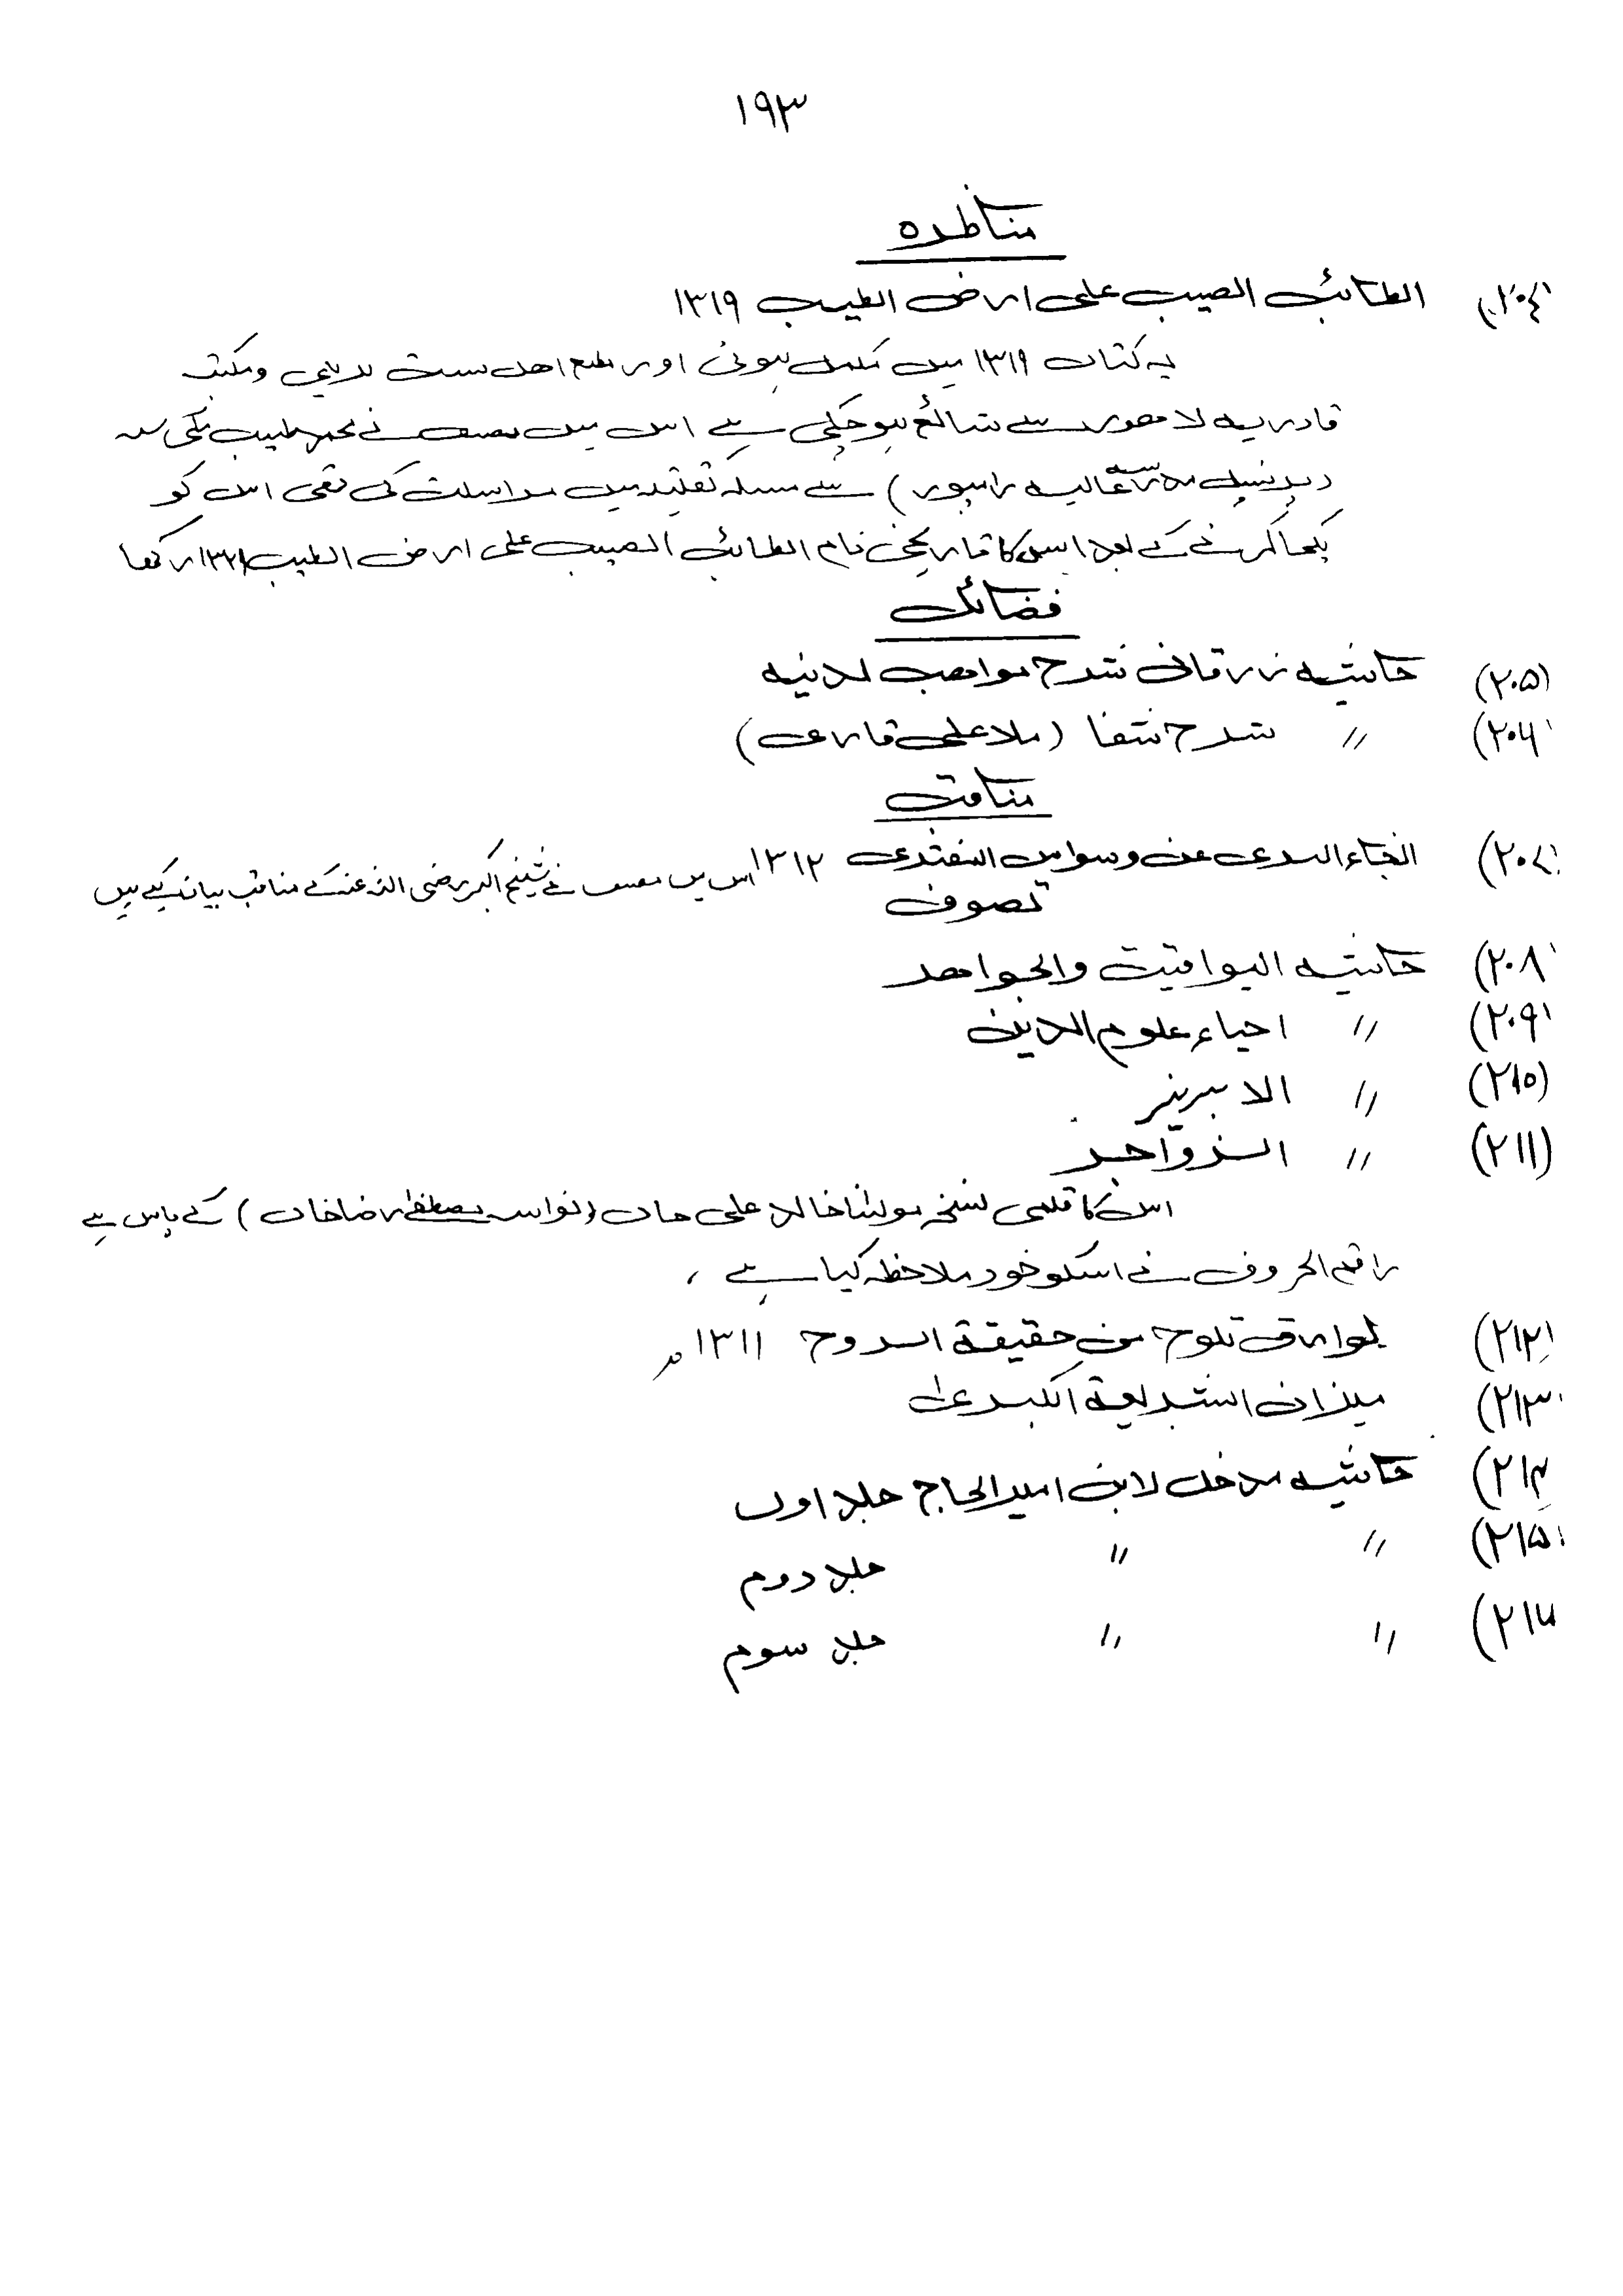 ۱۹۳
مناظرہ
(۲۰۴) اطائب الصیب علی ارض الطیب ۱۳۱۹
یہ کتاب ۱۳۱۹ میں مکمل ہوئی اور مطبع اھل سنت بریلی و مکتبہ
قادریہ لاھور سے شائع ہوچکی ہے اس میں مصنف نے محمد طیب مکی سے
(پرنسپل مدرسہ عالیہ رامپور) سے مسئلہ تقلید میں مراسلت کی تھی اس کو
یکجا کرنے کے بعد اس کا تاریخی نام اطائب الصیب علی ارض الطیب رکھا
فضائل
(۲۰۵) حاشیہ زرقانی شرح مواھب لدنیہ
(۲۰۶) // شرح شفا (ملا علی قاری)
مناقب
(۲۰۷) انجاء البری عن وسواس المفتری ۱۳۱۲ اس میں مصنف نے شیخ اکبر رضی اللہ عنہ کے مناقب بیان کیے ہیں
تصوف
(۲۰۸) حاشیہ الیواقیت والجواھر
(۲۰۹) // احیاء علوم الدین
(۲۱۰) // الابریز
(۲۱۱) // الزواجر
اس کا قلمی نسخہ مولٰنا خالد علی خاں (نواسہ مصطفٰے رضا خاں) کے پاس ہے
راقم الحروف نے اسکو خود ملاحظہ کیا ہے ،
(۲۱۲) بوارق تلوح من حقیقۃ الروح ۱۳۱۱ھ
(۲۱۳) میزان الشریعۃ الکبریٰ
(۲۱۴) حاشیہ مدخل لابن امیر الحاج جلد اول
(۲۱۵) // // جلد دوم
(۲۱۶) // // جلد سوم